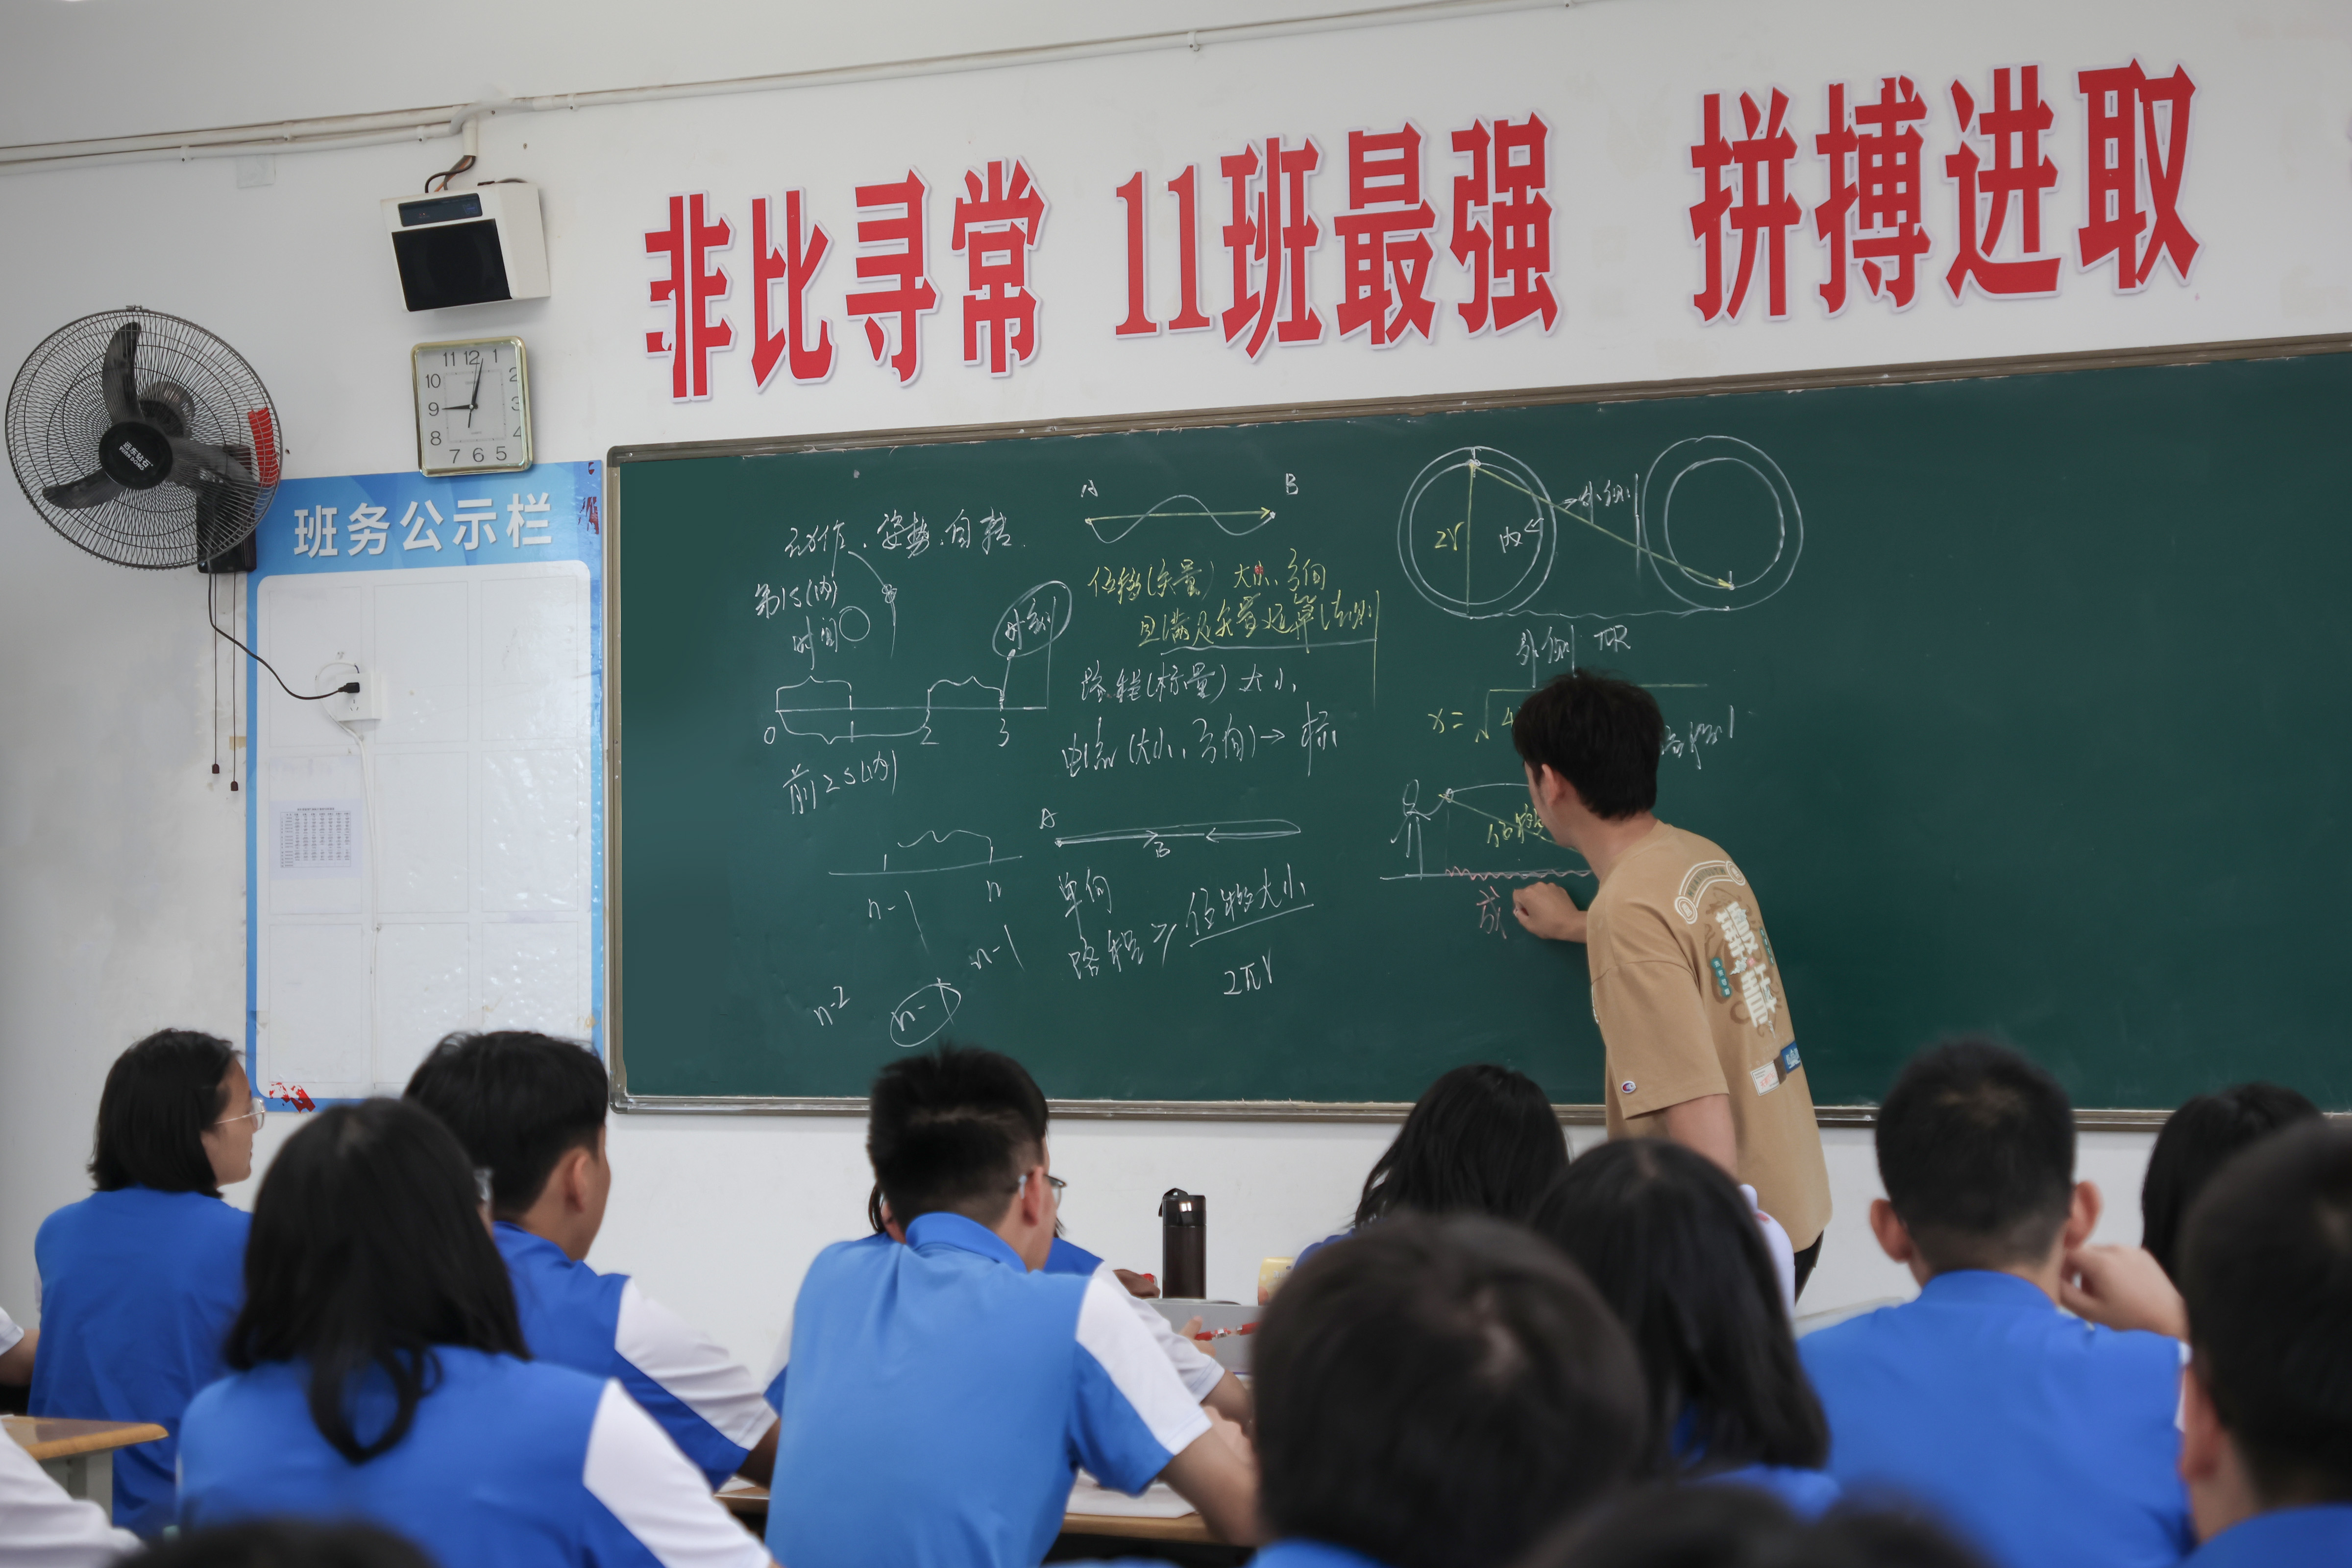 非比寻常 11班最强 拼搏进取
11 12 1
10 2
9 3
8 4
7 6 5
班务公示栏
动作、姿势、自转.
第1s(内)
时间
时刻
0 1 2 3
前2s(内)
n-1 n
n-1
n-2 n-1
A B
位移(矢量) 大小、方向
且满足矢量运算法则
路程(标量) 大小
电流(大小、方向)→标
A
B
单向
路程≥位移大小
2πr
2r 内 外侧
外侧 πR
x=√4
位移
成